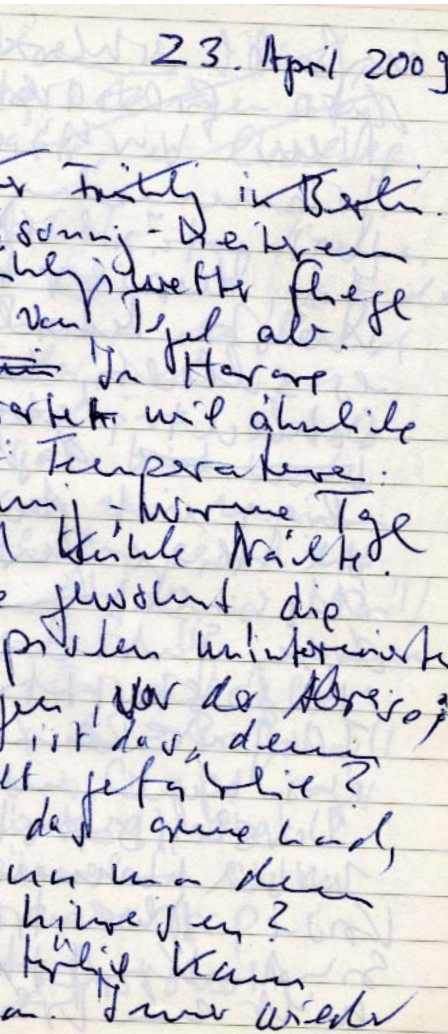 23. April 2009
er Frühlig in Berlin.
sonnig-heiterem
hligswetter fliege
von Tegel ab.
In Harare
artet mi ähnliche
Temperature.
nig-warme Tage
kühle Nächte.
gewohnt die
uninformierte
gen, vor der Abreise,
ist das, denn
gefährlich?
das arme Land,
nn ma denn
hinreisen?
türlich kann
Immer wieder